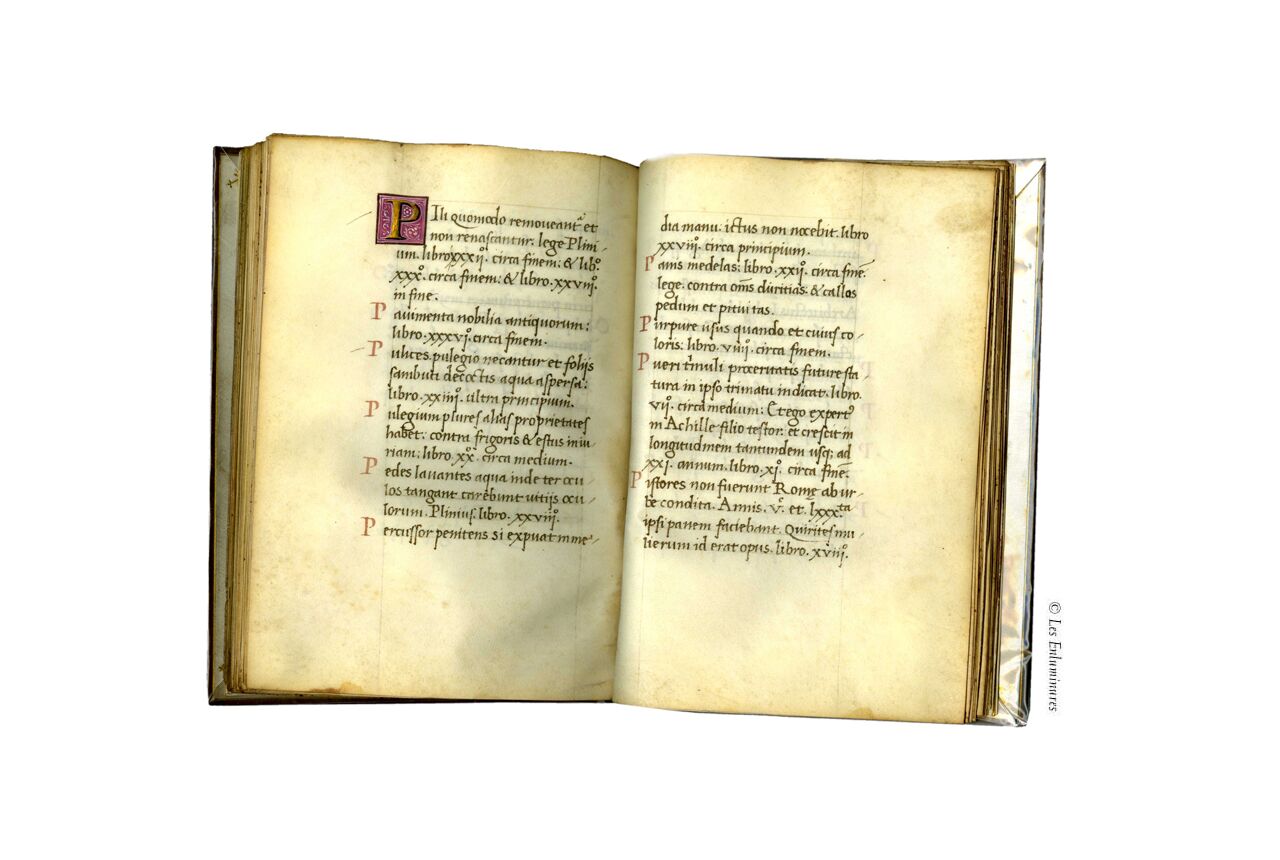 Pili quomodo removeant̃ et
non renascantur: lege Plini-
um. libro xxxij. circa finem: & lib.
xxx. circa finem: & libro. xxviij.
in fine.
Pavimenta nobilia antiquorum:
libro. xxxvj. circa finem.
Pulices pulegio necantur et folijs
sambuci decoctis aqua aspersa:
libro. xxiiij. ultra principium.
Pulegium plures alias proprietates
habet: contra frigoris & estus iniu-
riam: libro. xx. circa medium.
Pedes lavantes aqua inde ter ocu-
los tangant carebunt vitijs ocu-
lorum. Plinius. libro. xxviij.
Percussor penitens si expuat in me-
dia manu: ictus non nocebit. libro
xxviij. circa principium.
Panis medelas: libro. xxij. circa finẽ.
lege. contra om̃s duritias. & callos
pedum et pituitas.
Purpure usus quando et cuius co-
loris: libro. viiij. circa finem.
Pueri trimuli proceritatis future sta-
tura in ipso trimatu indicat. libro.
vij. circa medium: Et ego expert9
in Achille filio testor: et crescit in
longitudinem tantundem usq; ad
xxi. annum. libro. xj. circa finẽ.
Pistores non fuerunt Romę ab ur-
be condita. Annis. v. et. lxxx.ta
ipsi panem faciebant. Quirites mu-
lierum id erat opus. libro. xviij.
© Les Enluminures